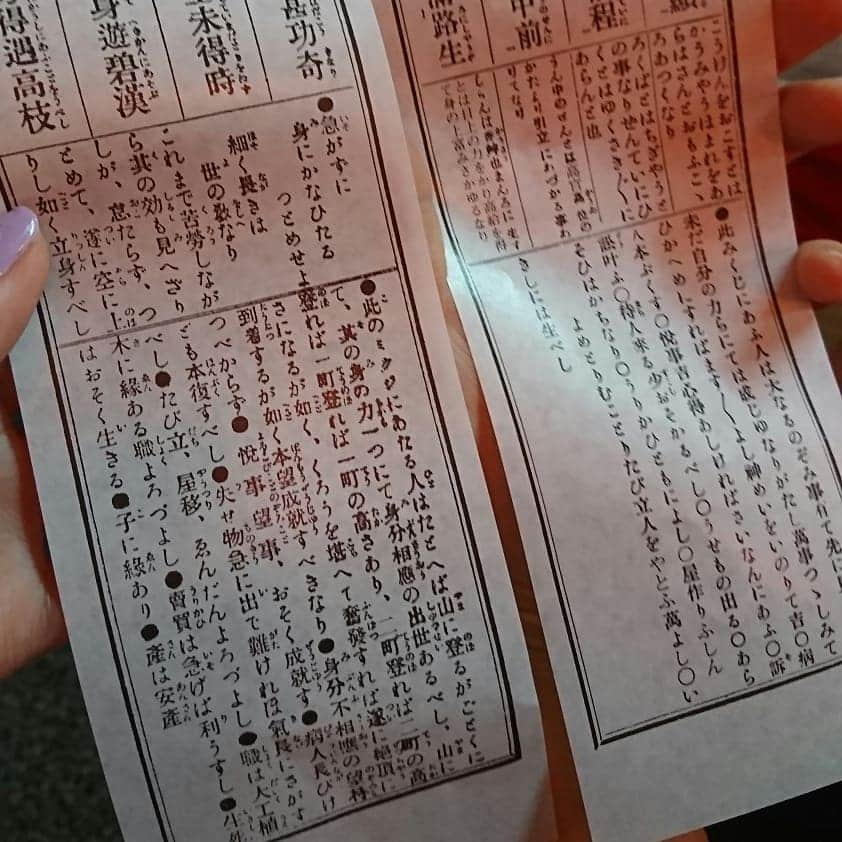 程
中前
路生
こうけんをおこすとは
かうみやうはよれをあ
らはさんとおもふこゝ
ろあつくなり
ろくばとはちぎやうと
の事なりせんていにひ
くとはゆくさき〲に
あらんと也
うん中のぜんとは高官高位の
かたたち引立にあづかる事あ
りてなり
しらんは香艸也まんろに生ず
とは目上の力をかり高給を得
て身の上富みさかゆるなり
●此みくじにあふ人は大なるのぞみ事有て先に
未だ自分の力らにては成じゆなりがたし萬事つゝしみて
ひかへめにすればます〱よし神めいをいのりて吉〇病
人本ぷくす〇悦事吉心得あしければさいなんにあふ〇訴
訟叶ふ〇待人来る少おそかるべし〇うせもの出る〇あら
そひはかちなり〇うりかひともによし〇屋作りふしん
よめとりむことりたび立人をやとふ萬よし〇い
きしには生べし
甚功奇
未得時
身遊碧漢
得遇高枝
●急がずに
身にかなひたる
つとめせよ
細く長きは
世の教なり
これまで苦勞しなが
ら其の効も見へざり
しが、怠たらず、つ
とめて、遂に空に上
りし如く立身すべし
●此のミクジにあたる人はたとへば山に登るがごとくに
て、其の身の力一つにて身分相應の出世あるべし、山に
登れば一町登れば一町の高さあり、二町登れば二町の高
さになるが如く、くろうを堪へて奮發すれば遂に絶頂に
到着するが如く本望成就すべきなり●身分不相應の望
つべからず●悦事望事、おそく成就す●病人長びけ
ども本復すべし●失せ物急に出で難ければ氣長にさがす
べし●たび立、屋移、ゑんだんよろづよし●職は大工植
木に緣ある職よろづよし●賣買は急げば利うすし●生
はおそく生きる●子に緣あり●產は安產